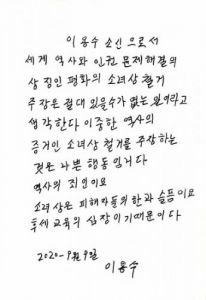 이용수 소신으로서
세계 역사와 인권 문제해결의
상징인 평화의 소녀상 철거
주장은 절대 있을수가 없는 일이라고
생각한다 이중한 역사의
증거인 소녀상 철거를 주장하는
것은 나쁜 행동입니다
역사의 죄인이요
소녀상은 피해자들의 한과 슬픔이요
후세 교육의 심장이기때문이다
2020-9월9일
이용수